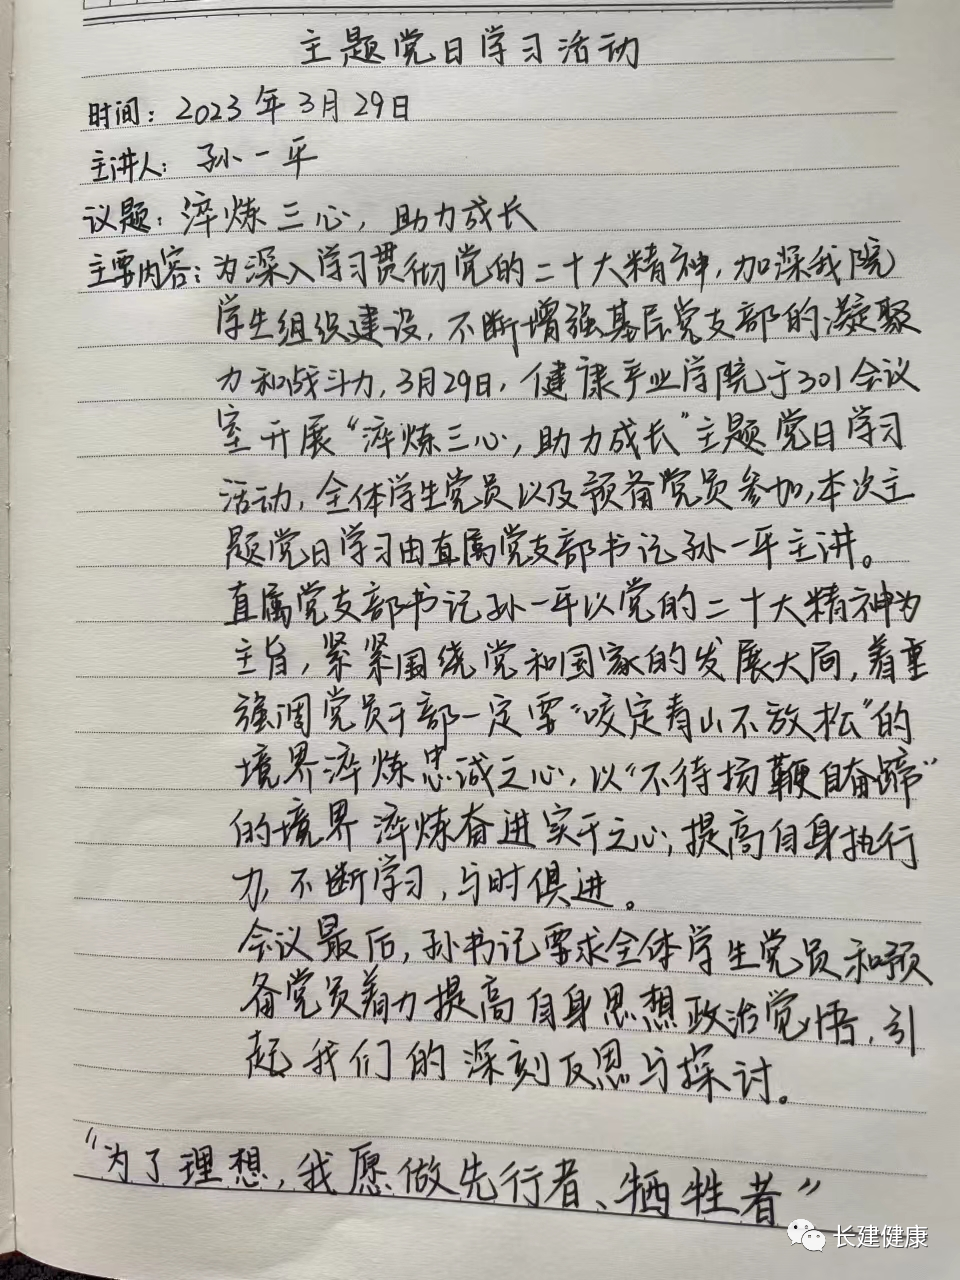 主题党日学习活动
时间：2023年3月29日
主讲人：孙一平
议题：淬炼三心，助力成长
主要内容：为深入学习贯彻党的二十大精神，加深我院
学生组织建设，不断增强基层党支部的凝聚
力和战斗力，3月29日，健康产业学院于301会议
室开展“淬炼三心，助力成长”主题党日学习
活动，全体学生党员以及预备党员参加，本次主
题党日学习由直属党支部书记孙一平主讲。
直属党支部书记孙一平以党的二十大精神为
主旨，紧紧围绕党和国家的发展大局，着重
强调党员干部一定要“咬定青山不放松”的
境界淬炼忠诚之心，以“不待扬鞭自奋蹄”
的境界淬炼奋进实干之心，提高自身执行
力，不断学习，与时俱进。
会议最后，孙书记要求全体学生党员和预
备党员着力提高自身思想政治觉悟，引
起我们的深刻反思与探讨。
“为了理想，我愿做先行者、牺牲者”
长建健康